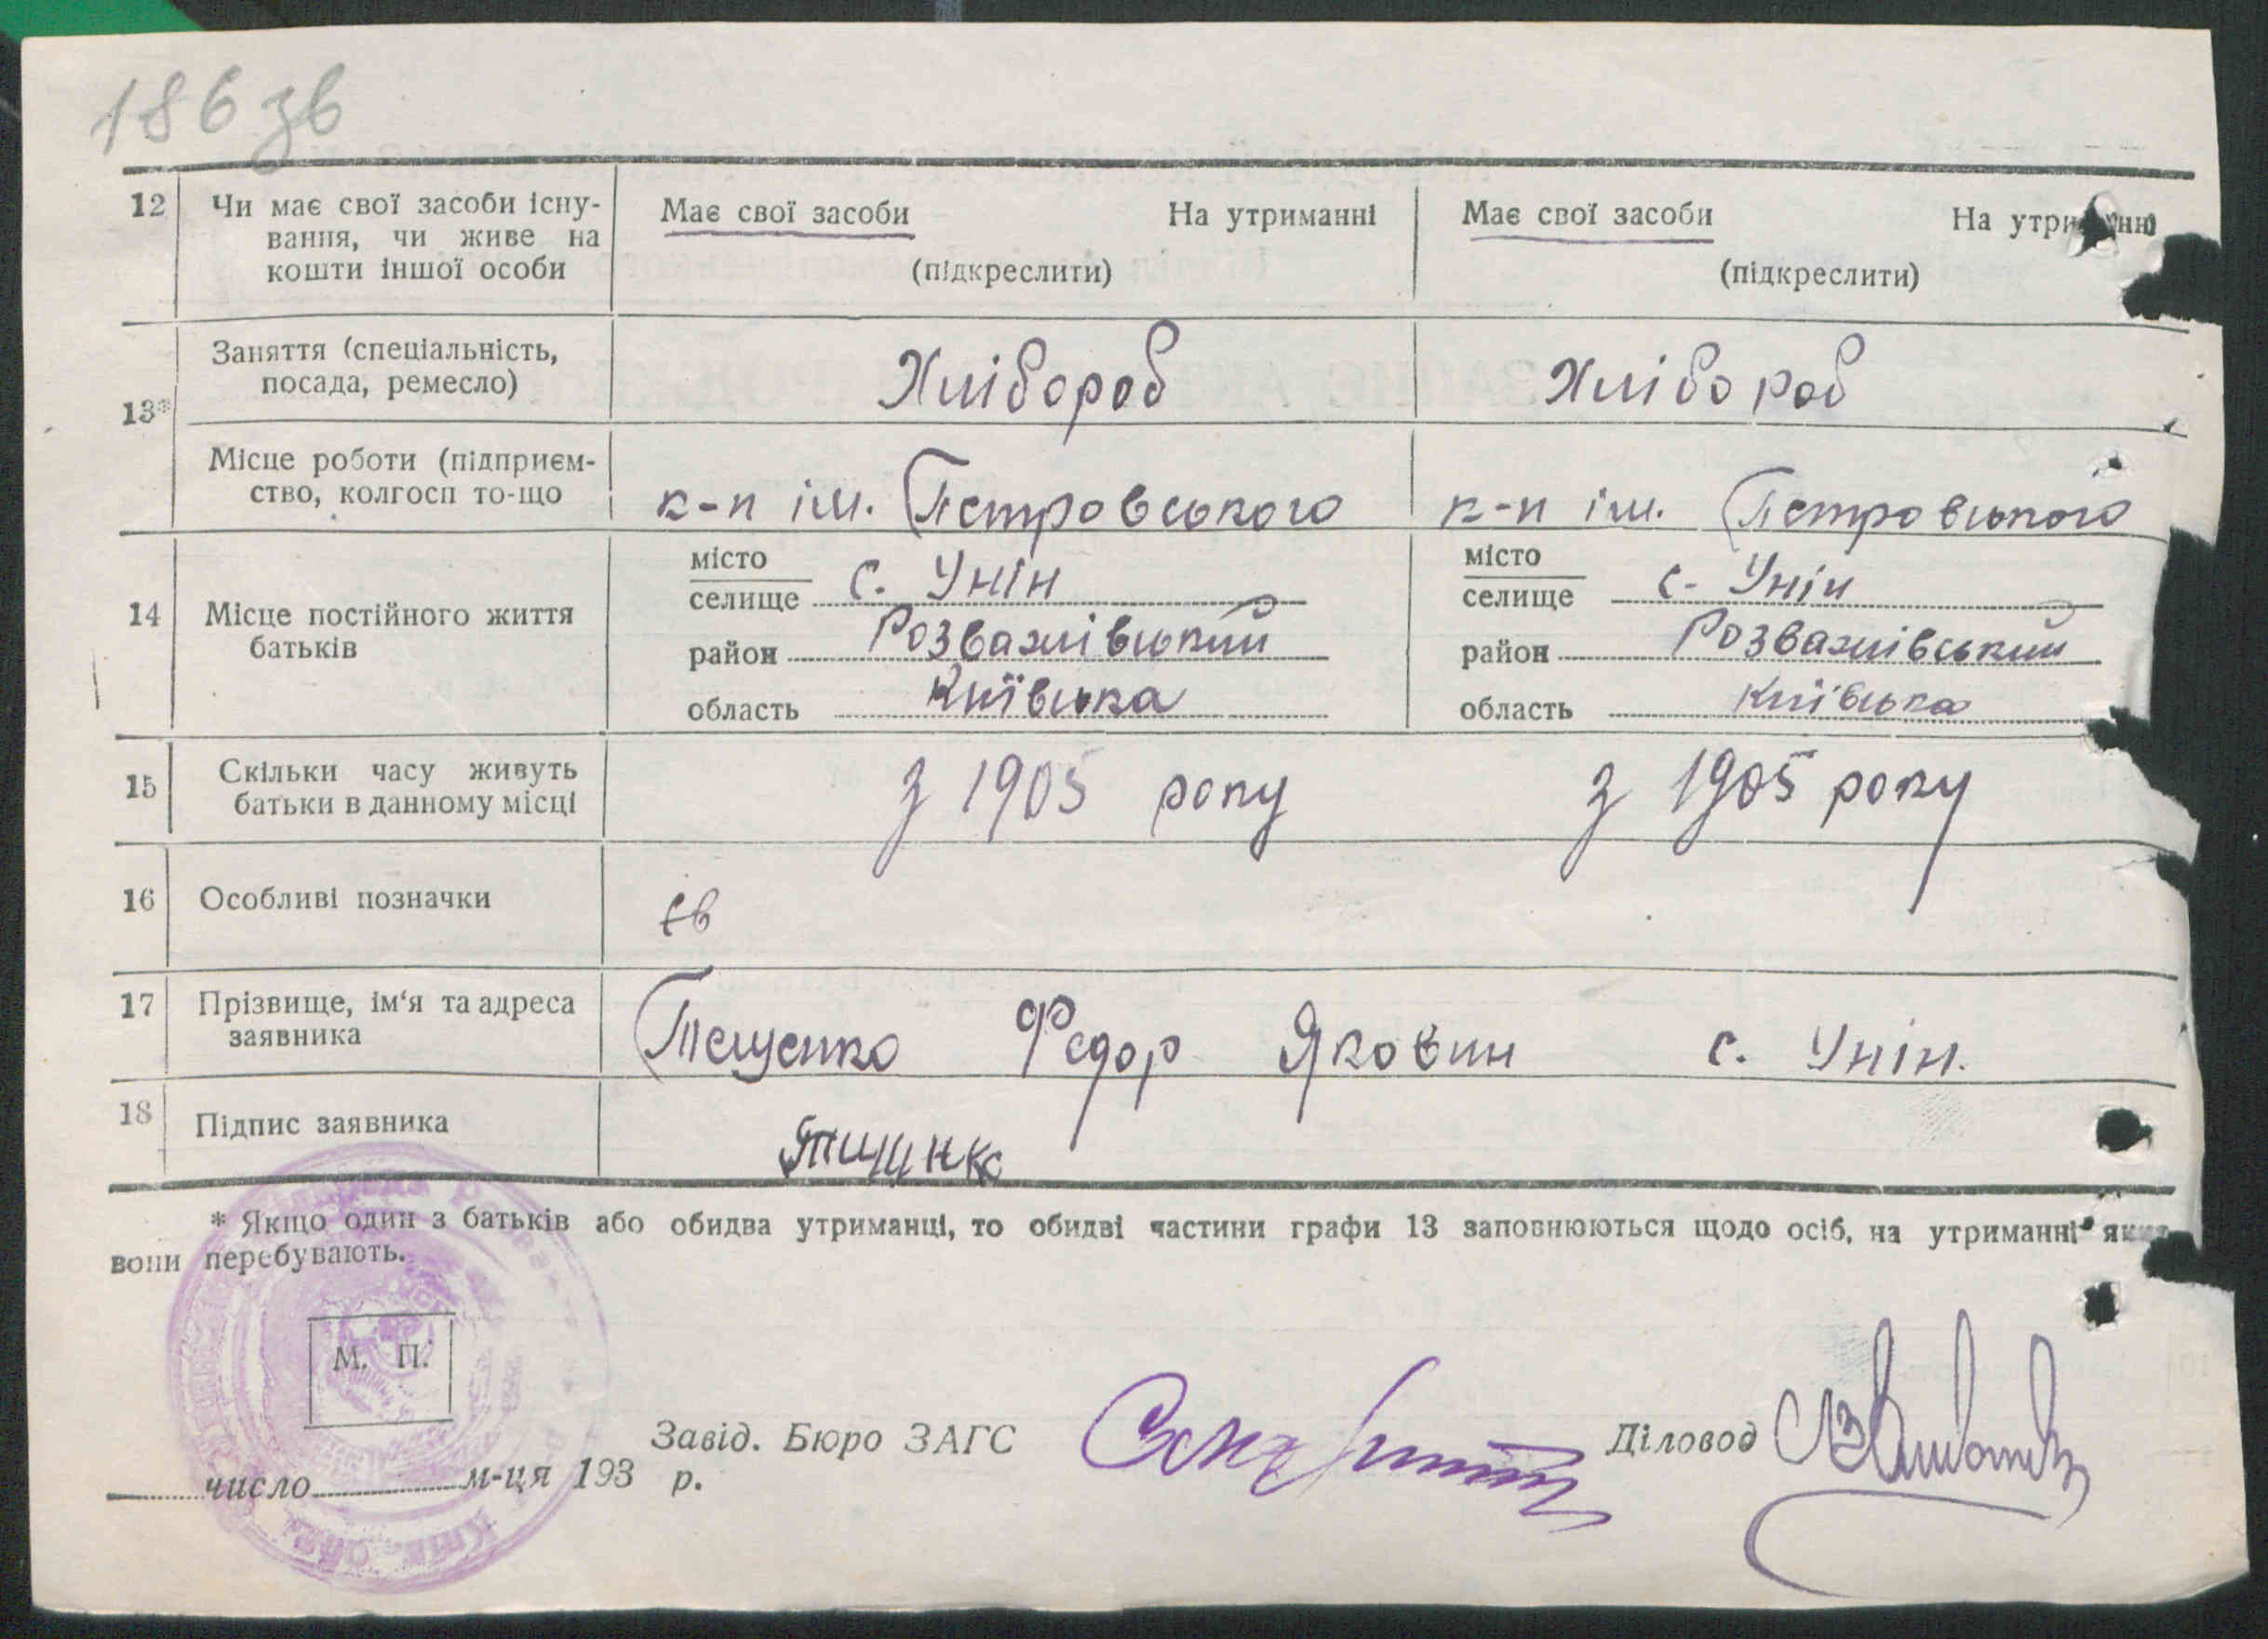 186 зв
12 Чи має свої засоби існу- Має свої засоби На утриманні Має свої засоби На утри нні
вання, чи живе на
кошти іншої особи (підкреслити) (підкреслити)
Заняття (спеціальність,
посада, ремесло) Хлібороб Хлібороб
13*
Місце роботи (підприєм-
ство, колгосп то-що к-п ім. Петровського к-п ім. Петровського
місто місто
селище с. Унін селище с. Унін
14 Місце постійного життя
батьків район Розважівський район Розважівський
область Київська область Київська
15 Скільки часу живуть
батьки в данному місці з 1905 року з 1905 року
16 Особливі позначки єв
17 Прізвище, ім'я та адреса
заявника Тещенко Федор Яковин с. Унін.
18 Підпис заявника
* Якщо один з батьків або обидва утриманці, то обидві частини графи 13 заповнюються щодо осіб, на утриманні яких
вони перебувають.
М. П.
Завід. Бюро ЗАГС Діловод
число м-ця 193 р.